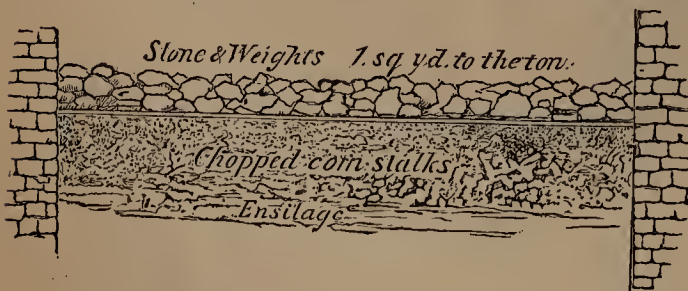 Stone & Weights 1. sq yd. to the ton.
Chopped corn stalks
Ensilage